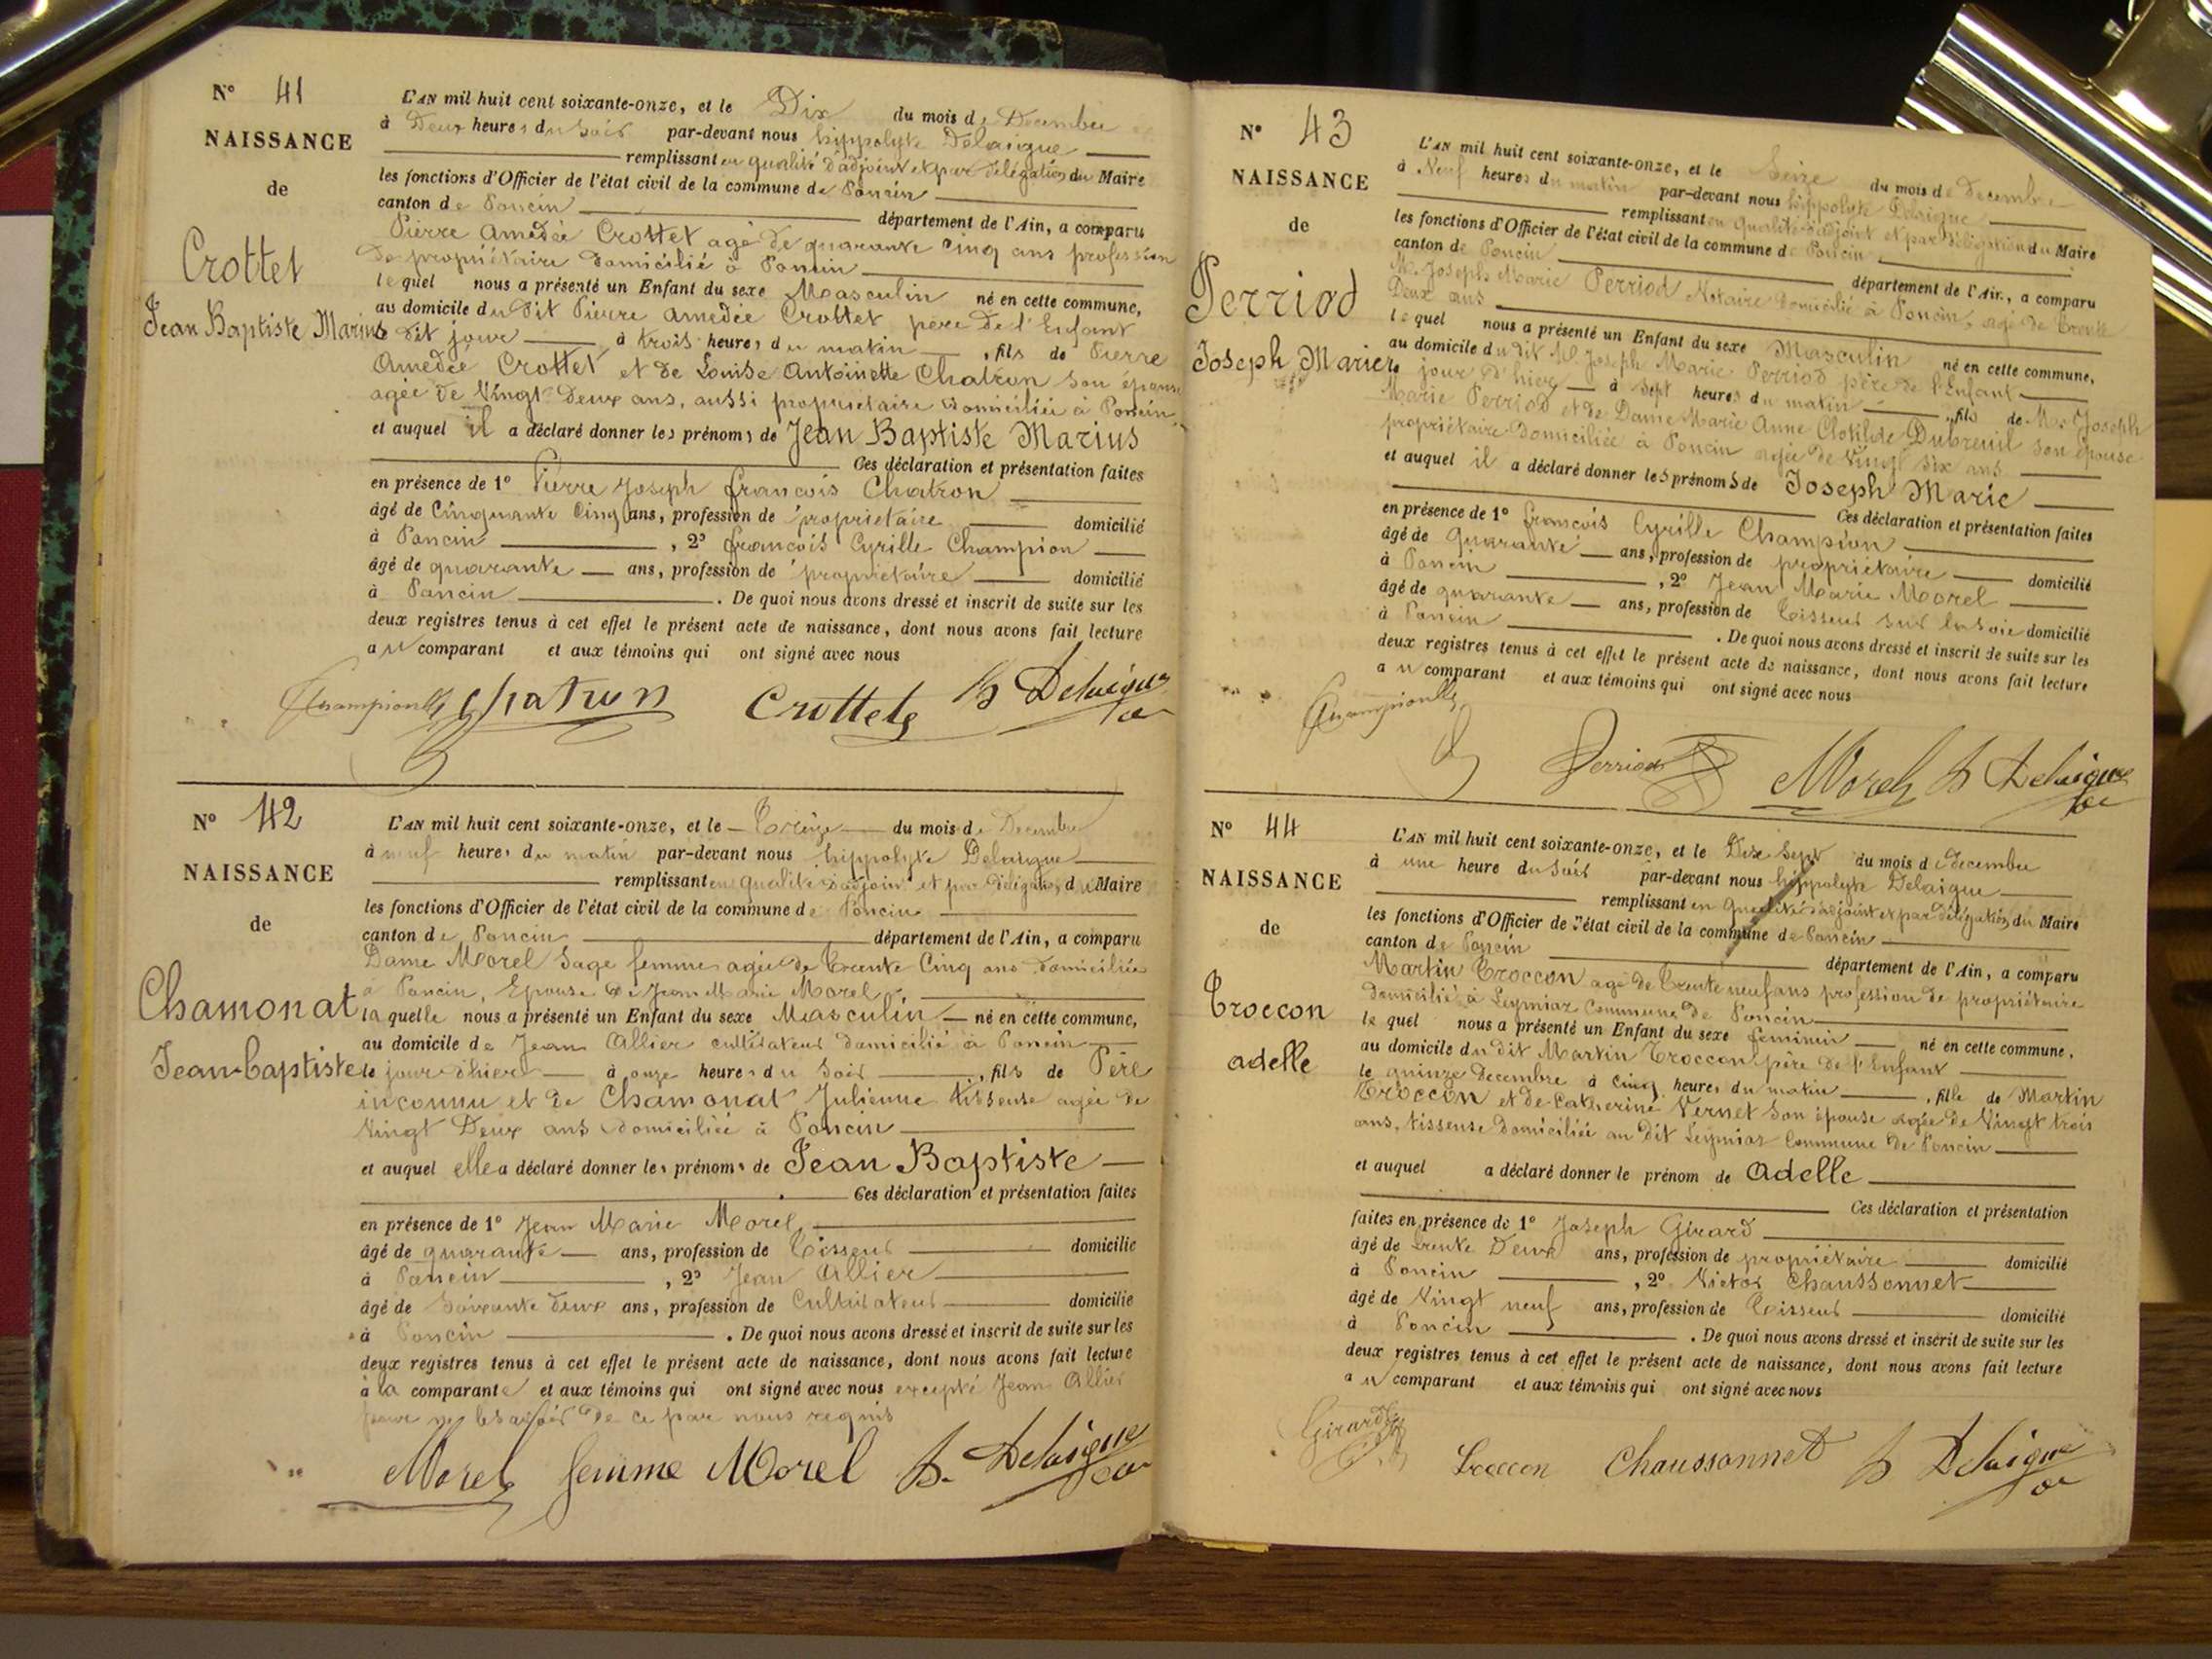 N° 41
NAISSANCE
de
Crottet
Jean Baptiste Marius
L'AN mil huit cent soixante-onze, et le Dix du mois de Decembre
à Deux heures du Soir par-devant nous hippolyte Delaigue
remplissant en qualité d'adjoint et par délégation du Maire
les fonctions d'Officier de l'état civil de la commune de Poncin
canton de Poncin département de l'Ain, a comparu
Pierre Amedée Crottet agé de quarante cinq ans profession
de propriétaire domicilié à Poncin
lequel nous a présenté un Enfant du sexe Masculin né en cette commune,
au domicile du Dit Pierre Amedée Crottet père de l'Enfant
le dit jour à trois heures du matin, fils de Pierre
Amedée Crottet et de Louise Antoinette Chatron son épouse
agée de Vingt Deux ans, aussi proprietaire domiciliée à Poncin
et auquel il a déclaré donner les prénoms de Jean Baptiste Marius
Ces déclaration et présentation faites
en présence de 1° Pierre Joseph francois Chatron
âgé de Cinquante Cinq ans, profession de proprietaire domicilié
à Poncin, 2° francois Cyrille Champion
âgé de quarante ans, profession de proprietaire domicilié
à Poncin. De quoi nous avons dressé et inscrit de suite sur les
deux registres tenus à cet effet le présent acte de naissance, dont nous avons fait lecture
au comparant et aux témoins qui ont signé avec nous
Champion Chatron Crottet h Delaigue
N° 42
NAISSANCE
de
Chamonat
Jean-baptiste
L'AN mil huit cent soixante-onze, et le Treize du mois de Decembre
à neuf heures du matin par-devant nous hippolyte Delaigue
remplissant en qualité d'adjoint et par délégation du Maire
les fonctions d'Officier de l'état civil de la commune de Poncin
canton de Poncin département de l'Ain, a comparu
Dame Morel Sage femme agée de Trente Cinq ans domiciliée
a Poncin, Epouse de Jean Marie Morel
laquelle nous a présenté un Enfant du sexe Masculin né en cette commune,
au domicile de Jean Allier cultivateur domicilié à Poncin
le jour d'hier à onze heures du Soir, fils de Père
inconnu et de Chamonat Julienne tisseuse agée de
Vingt Deux ans domiciliée à Poncin
et auquel elle a déclaré donner les prénoms de Jean Baptiste
Ces déclaration et présentation faites
en présence de 1° Jean Marie Morel
âgé de quarante ans, profession de Tisseur domicilié
à Poncin, 2° Jean Allier
âgé de Soixante deux ans, profession de Cultivateur domicilié
à Poncin. De quoi nous avons dressé et inscrit de suite sur les
deux registres tenus à cet effet le présent acte de naissance, dont nous avons fait lecture
à la comparante et aux témoins qui ont signé avec nous excepté Jean Allier
pour ne le savoir de ce par nous requis
Morel femme Morel h. Delaigue
N° 43
NAISSANCE
de
Perriod
Joseph Marie
L'AN mil huit cent soixante-onze, et le Seize du mois de Decembre
à Neuf heures du matin par-devant nous hippolyte Delaigue
remplissant en qualité d'adjoint et par délégation du Maire
les fonctions d'Officier de l'état civil de la commune de Poncin
canton de Poncin département de l'Ain, a comparu
Mr. Joseph Marie Perriod Notaire domicilié à Poncin, agé de Trente
Deux ans
lequel nous a présenté un Enfant du sexe Masculin né en cette commune,
au domicile du dit Mr Joseph Marie Perriod père de l'Enfant
le jour d'hier à Sept heures du matin, fils de Mr Joseph
Marie Perriod et de Dame Marie Anne Clotilde Dubreuil son épouse
propriétaire domiciliée à Poncin agée de Vingt six ans
et auquel il a déclaré donner les prénoms de Joseph Marie
Ces déclaration et présentation faites
en présence de 1° francois Cyrille Champion
âgé de quarante ans, profession de propriétaire domicilié
à Poncin, 2° Jean Marie Morel
âgé de quarante ans, profession de Tisseur sur la soie domicilié
à Poncin. De quoi nous avons dressé et inscrit de suite sur les
deux registres tenus à cet effet le présent acte de naissance, dont nous avons fait lecture
au comparant et aux témoins qui ont signé avec nous
Champion
Perriod Morel h Delaigue
N° 44
NAISSANCE
de
Troccon
adelle
L'AN mil huit cent soixante-onze, et le Dix Sept du mois de decembre
à une heure du Soir par-devant nous hippolyte Delaigue
remplissant en qualité d'adjoint et par délégation du Maire
les fonctions d'Officier de l'état civil de la commune de Poncin
canton de Poncin département de l'Ain, a comparu
Martin Troccon agé de Trente neuf ans profession de propriétaire
domicilié à Leymiar Commune de Poncin
lequel nous a présenté un Enfant du sexe feminin né en cette commune,
au domicile du dit Martin Troccon père de l'Enfant
le quinze Decembre à Cinq heures du matin, fille de Martin
Troccon et de Catherine Vernet son épouse agée de Vingt trois
ans, tisseuse domiciliée au dit Leymiar Commune de Poncin
et auquel a déclaré donner le prénom de Adelle
Ces déclaration et présentation
faites en présence de 1° Joseph Girard
âgé de Trente Deux ans, profession de propriétaire domicilié
à Poncin, 2° Victor Chaussonnet
âgé de Vingt neuf ans, profession de Tisseur domicilié
à Poncin. De quoi nous avons dressé et inscrit de suite sur les
deux registres tenus à cet effet le présent acte de naissance, dont nous avons fait lecture
au comparant et aux témoins qui ont signé avec nous
Girard Troccon Chaussonnet h Delaigue